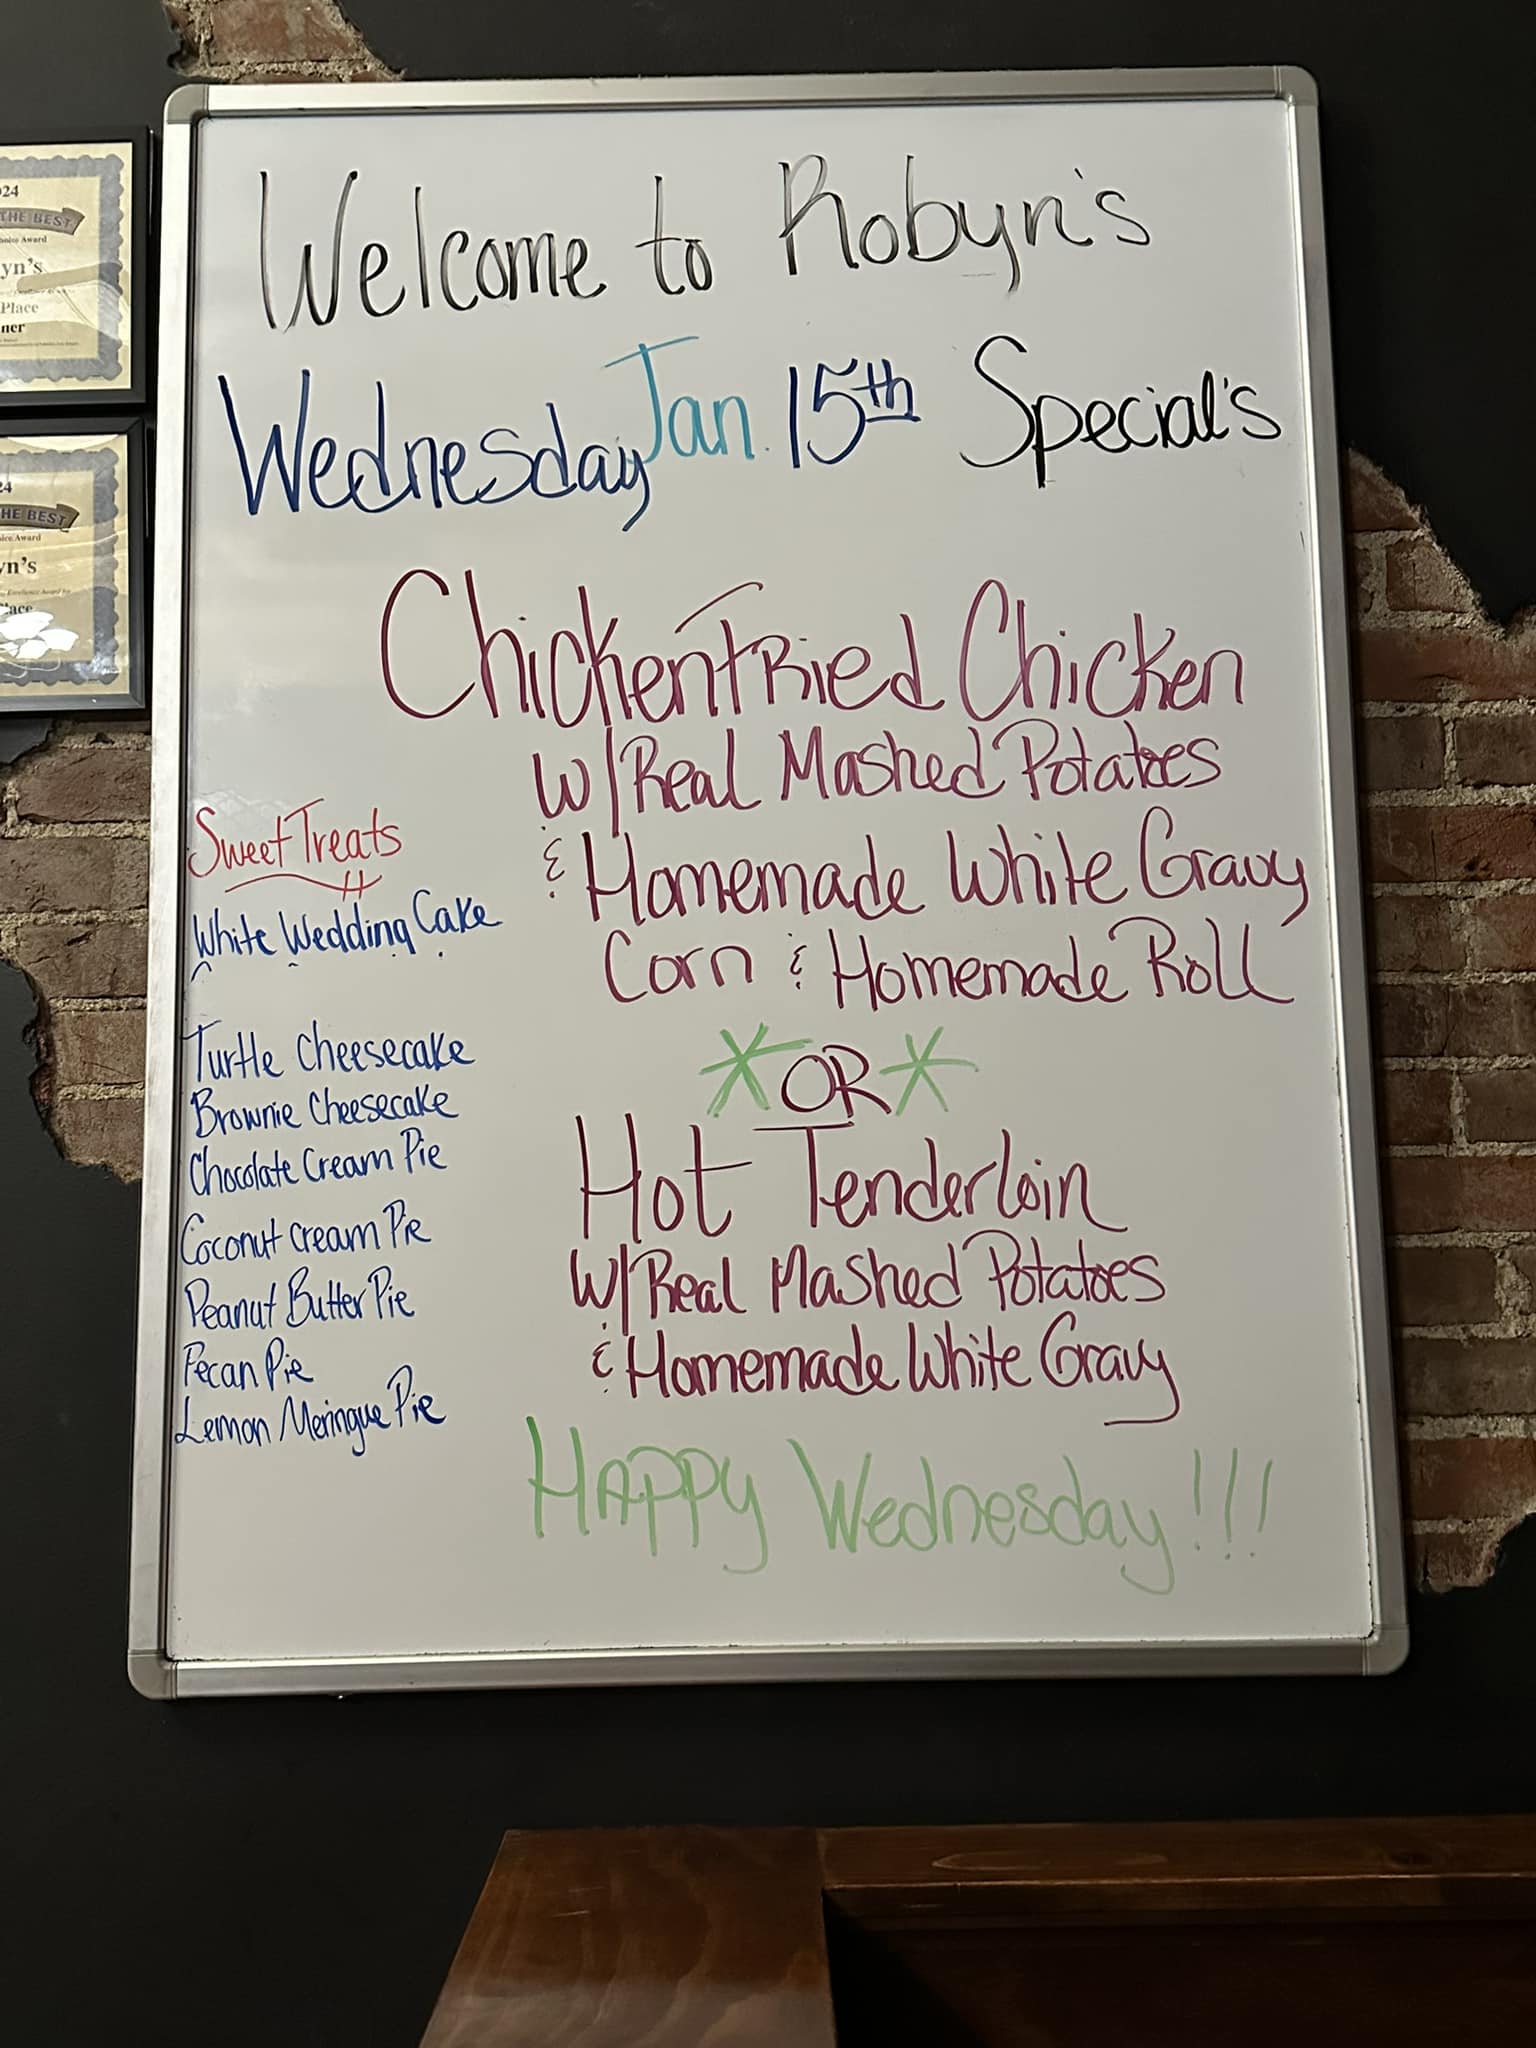 Welcome to Robyn's
Wednesday Jan. 15th Special's
Chicken Fried Chicken
w/Real Mashed Potatoes
& Homemade White Gravy
Corn & Homemade Roll
*OR*
Hot Tenderloin
w/Real Mashed Potatoes
& Homemade White Gravy
HAPPY Wednesday!!!
Sweet Treats
White Wedding Cake
Turtle Cheesecake
Brownie Cheesecake
Chocolate Cream Pie
Coconut Cream Pie
Peanut Butter Pie
Pecan Pie
Lemon Meringue Pie
24
THE BEST
Award
yn's
Place
ner
24
HE BEST
Award
yn's